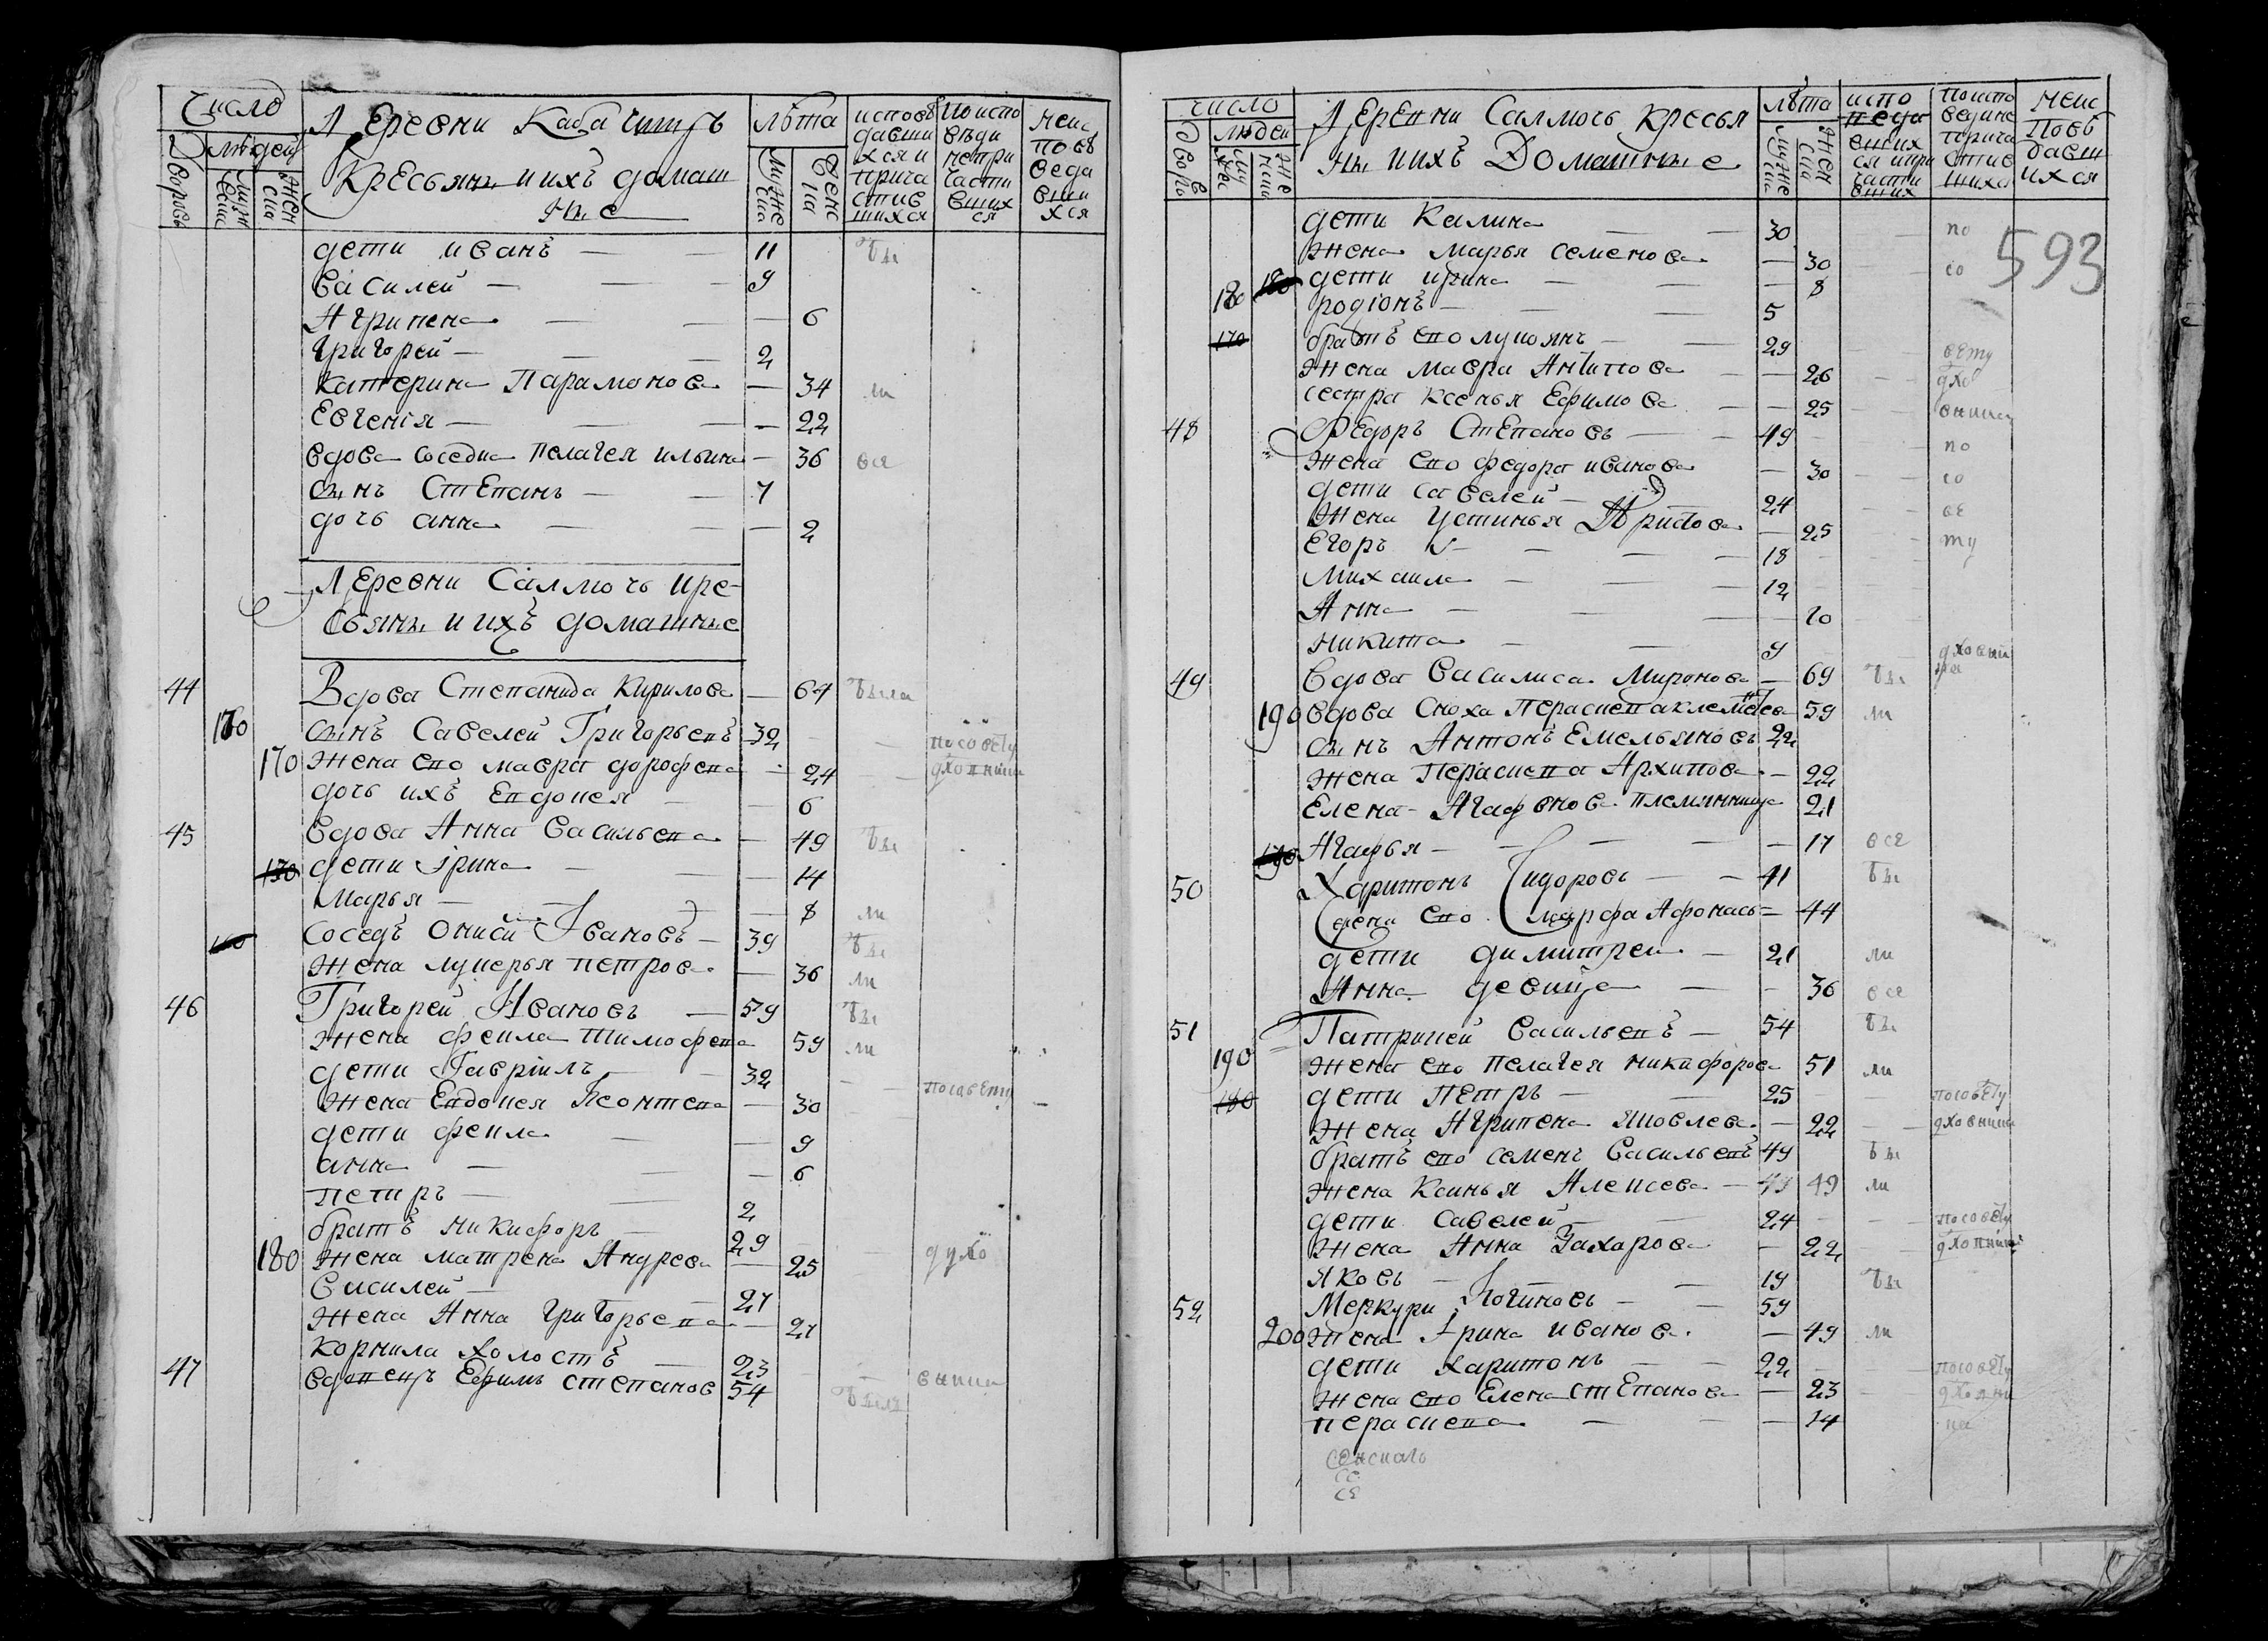 Число
Дворовъ
людей
мужеска
женска
Деревни Кабачитъ
Кресьяны ихъ домаш
ные
лѣта
мужеска
женска
исповѣ
давши
хся и
прича
стив
шихся
По испо
вѣди
непри
части
вшихся
неис
повѣ
веда
вши
хся
дети иванъ — 11 бы
Василей — 9
Агрипена — 6
Григорей — 2
Катерина Парамонова — 34 ли
Евгенїя — 22
вдова соседка Пелагея ильина — 36 все
сынъ Степанъ — 7
дочъ анна — 2
Деревни Салмочъ кре-
сьяны и ихъ домашные
44 Вдова Степанида Кирилова — 64 была
160 сынъ Савелей Григорьевъ 32 по совету
170 жена ево мавра дорофева — 24 дховника
дочъ ихъ Евдокея — 6
45 вдова Анна Васильева — 49 бы
170 дети Ірина — 14
Марья — 8 ли
160 соседъ Іванавъ — 39 бы
жена лукерья петрова — 36 ли
46 Григорей Ивановъ — 59 бы
жена фекла Тимофева 59 ли
дети Гаврїилъ 32
жена Евдокея Леонтева — 30 по савету
дети фекла — 9
анна — 6
петръ — 2
братъ никифоръ — 29
180 жена матрена Андрева — 25 духо
Василей — 27
жена Анна Григорьева — 27
корнила холостъ — 23
47 вдовецъ Ефимъ степановъ 54 былъ вника
число
дворовъ
людей
мужеска
женска
Деревни Салмочъ Кресья
ны ихъ Домашные
лѣта
мужеска
женска
испо
веда
вших
ся и при
части
вших
по испо
веди не
прича
стив
шихся
неис
повѣ
давш
ихся
593
дети Калина — 30 по
жена Марья семенова — 30 со
180 180 дети ирина — 8
родіонъ — 5
170 братъ ево лукоянъ — 29 вету
жена мавра Антипова — 26 дхо
сестра ксенья Ефимова — 25 вника
48 Федоръ Степановъ — 49 по
жена ево федора иванова — 30 со
дети савелей — 24 ве
жена устинья — 25 ту
Егоръ — 18
Михаила — 12
Анна — 10
никита — 9
49 Вдова Василиса Миронова — 69 бы
190 вдова сноха Параскева 59 ли
сынъ Антонъ Емельяновъ 22
жена Параскева Архипова — 22
Елена Агафонова племянница 21
190 Агафья — 17 все
50 Харитонъ Сидоровъ — 41 бы
жена ево марфа Афонасье — 44
дети димитрей — 21 ли
Анна девица — 36 все
51 Патрикей Васильевъ — 54 бы
190 жена ево пелагея никифорова 51 ли
180 дети Петръ — 25 по совету
жена Агрипена Яковлева — 22 дховника
братъ ево семенъ Васильевъ 49 бы
жена Ксинья Алексева — 49 49 ли
дети савелей — 24 по совету
жена Анна Захарова — 22 дховника
яковъ — 19 бы
52 Меркури Логиновъ — 59
200 жена Ірина иванова — 49 ли
дети харитонъ — 22 по совету
жена ево Елена степанова — 23 дховни
пераскева — 14 ка